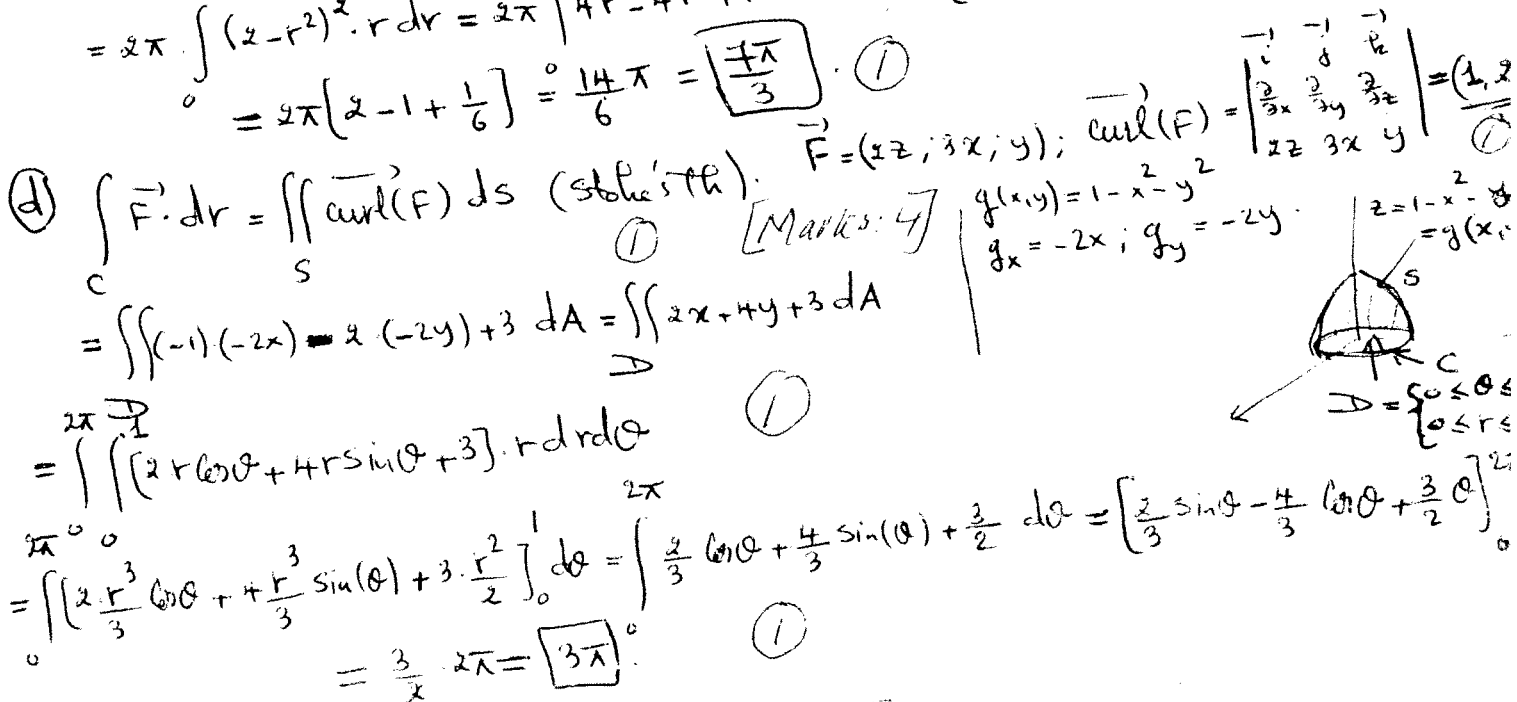 = 2π ∫₀ (2-r²)². r dr = 2π
= 2π[2-1+1/6] = 14/6 π = 7π/3 . ①
ⓓ ∫_C F⃗.dr = ∬_S curl(F) ds (stoke's Th). ① [Marks: 4]
F⃗ = (2z ; 3x ; y) ; curl(F) = | i⃗ j⃗ k⃗ ; ∂/∂x ∂/∂y ∂/∂z ; 2z 3x y | = (1, 2 ①
g(x,y) = 1-x²-y²
g_x = -2x ; g_y = -2y .
z = 1-x²-y
= g(x,
S
C
D = { 0 ≤ θ ≤
0 ≤ r ≤
= ∬_D (-1)(-2x) - 2 (-2y) + 3 dA = ∬_D 2x + 4y + 3 dA
= ∫₀^2π ∫₀^1 [2r cosθ + 4r sinθ + 3] . r dr dθ ①
= ∫₀^2π [2 . r³/3 cosθ + 4 r³/3 sin(θ) + 3 . r²/2]₀^1 dθ = ∫₀^2π 2/3 cosθ + 4/3 sin(θ) + 3/2 dθ = [2/3 sinθ - 4/3 cosθ + 3/2 θ]₀^2
= 3/2 . 2π = 3π . ①